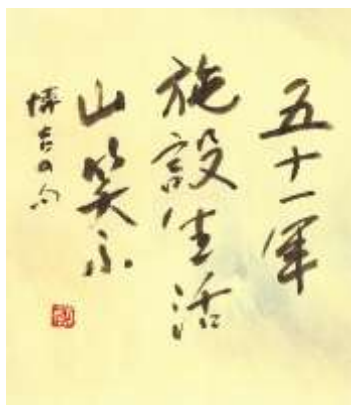 五十一年
施設生活
山笑ふ
博吉の句